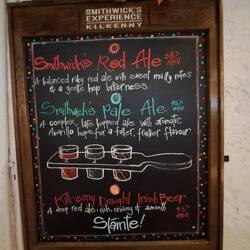 SMITHWICK'S
EXPERIENCE
KILKENNY
Smithwick's Red Ale
A balanced ruby red ale with sweet malty notes
& a gentle hop bitterness.
Smithwick's Pale Ale
A complex, late hopped ale with aromatic
Amarillo hops for a fuller, fresher flavour
Kilkenny Draught Irish Beer
A deep red ale, rich, creamy & smooth
Sláinte!